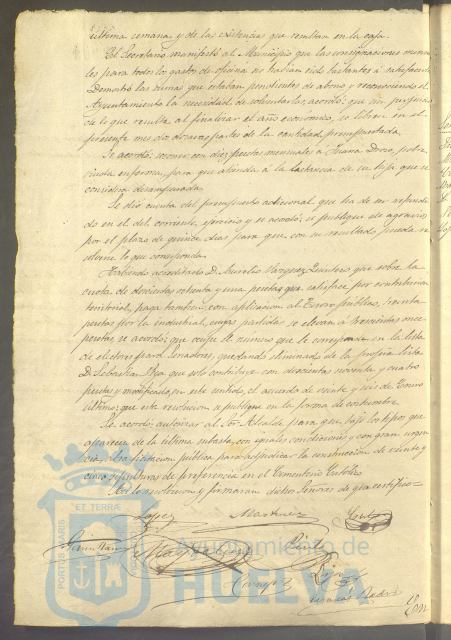 última semana y de las existencias que resultan en la caja.
El Secretario manifestó al Municipio que las consignaciones mensua-
les para todos los gastos de oficina no habían sido bastantes á satisfacerlos
Demostró las sumas que estaban pendientes de abono y reconociendo el
Ayuntamiento la necesidad de solventarlas, acordó: que sin perjuicio
de lo que resulte al finalizar el año económico, se libren en el
presente mes dos dozavas partes de la cantidad presupuestada.
Se acordó: socorrer con diez pesetas mensuales á Juana
viuda enferma, para que atienda á la lactancia de su hija que se
considera desamparada.
Se dió cuenta del presupuesto adicional que ha de ser refundi-
do en el del corriente ejercicio y se acordó: se publique de agravios
por el plazo de quince dias para que con su resultado pueda re-
solverse lo que corresponda.
Habiendo acreditado D. Aurelio Vazquez Quintero que sobre la
cuota de doscientas ochenta y una pesetas que satisface por contribucion
territorial, paga tambien con aplicacion al Tesoro público, treinta
pesetas por la industrial, cuyas partidas se elevan á trescientas once
pesetas se acordó: que ocupe el número que le corresponde en la lista
de electores para Senadores, quedando eliminado de la propia lista
D. Sebastian que solo contribuye con doscientas noventa y cuatro
pesetas y modificado en este sentido, el acuerdo de veinte y seis de Enero
último; que esta resolucion se publique en la forma de costumbre.
Se acordó: autorizar al Sor. Alcalde para que bajo los tipos que
aparecen de la última subasta, con iguales condiciones y con gran urgen-
cia, abra licitacion pública para adjudicar la construccion de veinte y
cinco sepulturas de preferencia en el Cementerio Católico.
Así lo resolvieron y firmaron dichos Señores de que certifico=
Lopez Martinez
PORTUS MARIS ET TERRAE
Ayuntamiento de
HUELVA